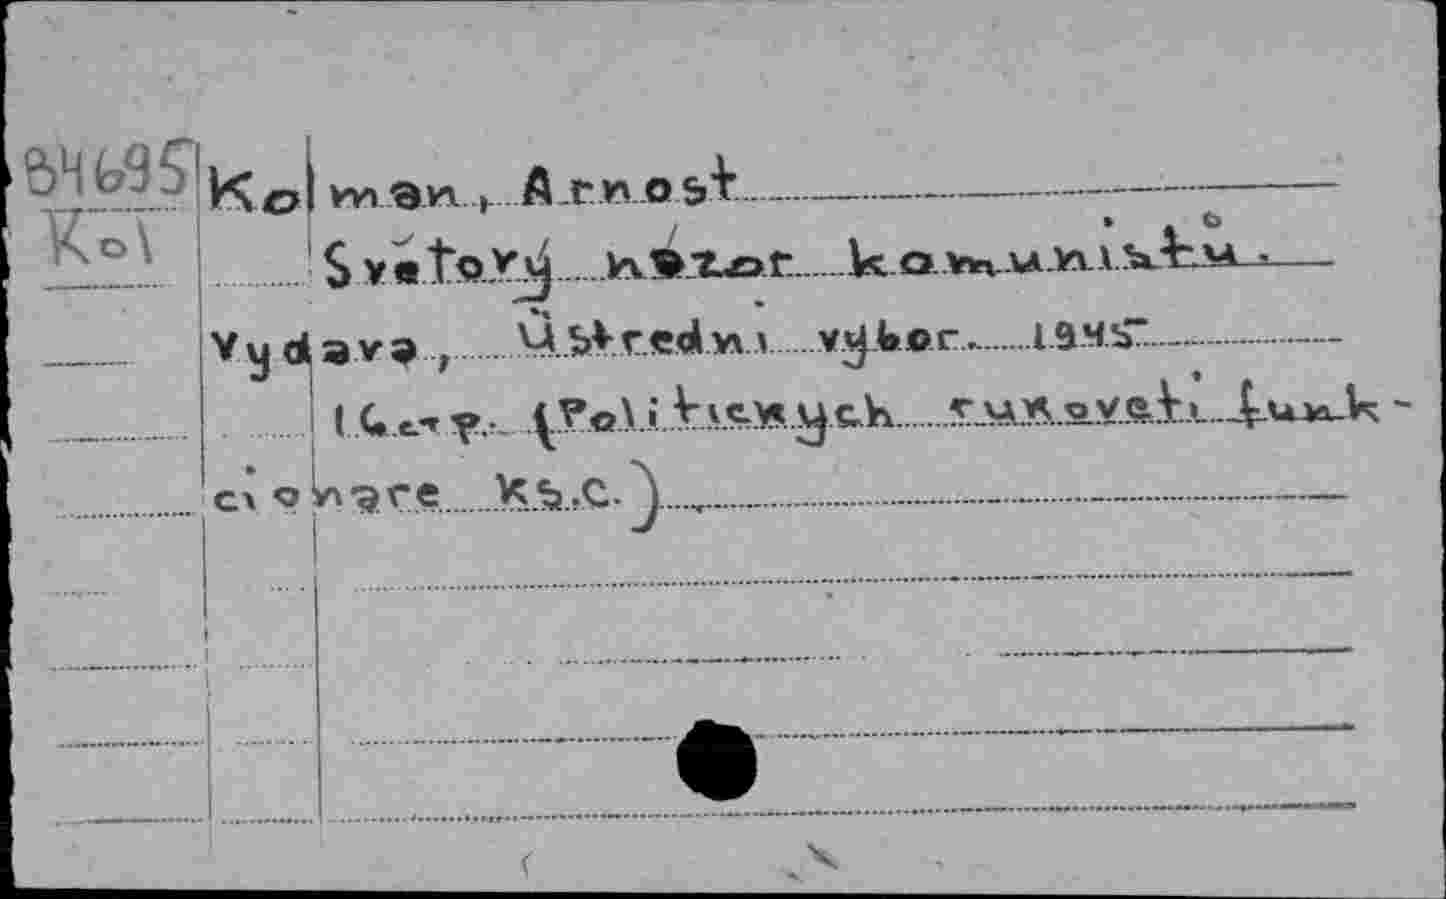 84695 Kolman, Arnost
Kol Svĕtový názor komunistů.
Vydava, Ústredni výbor. 1945
16 стр. (Politických rukoveti funk-
cionare KS.C.)